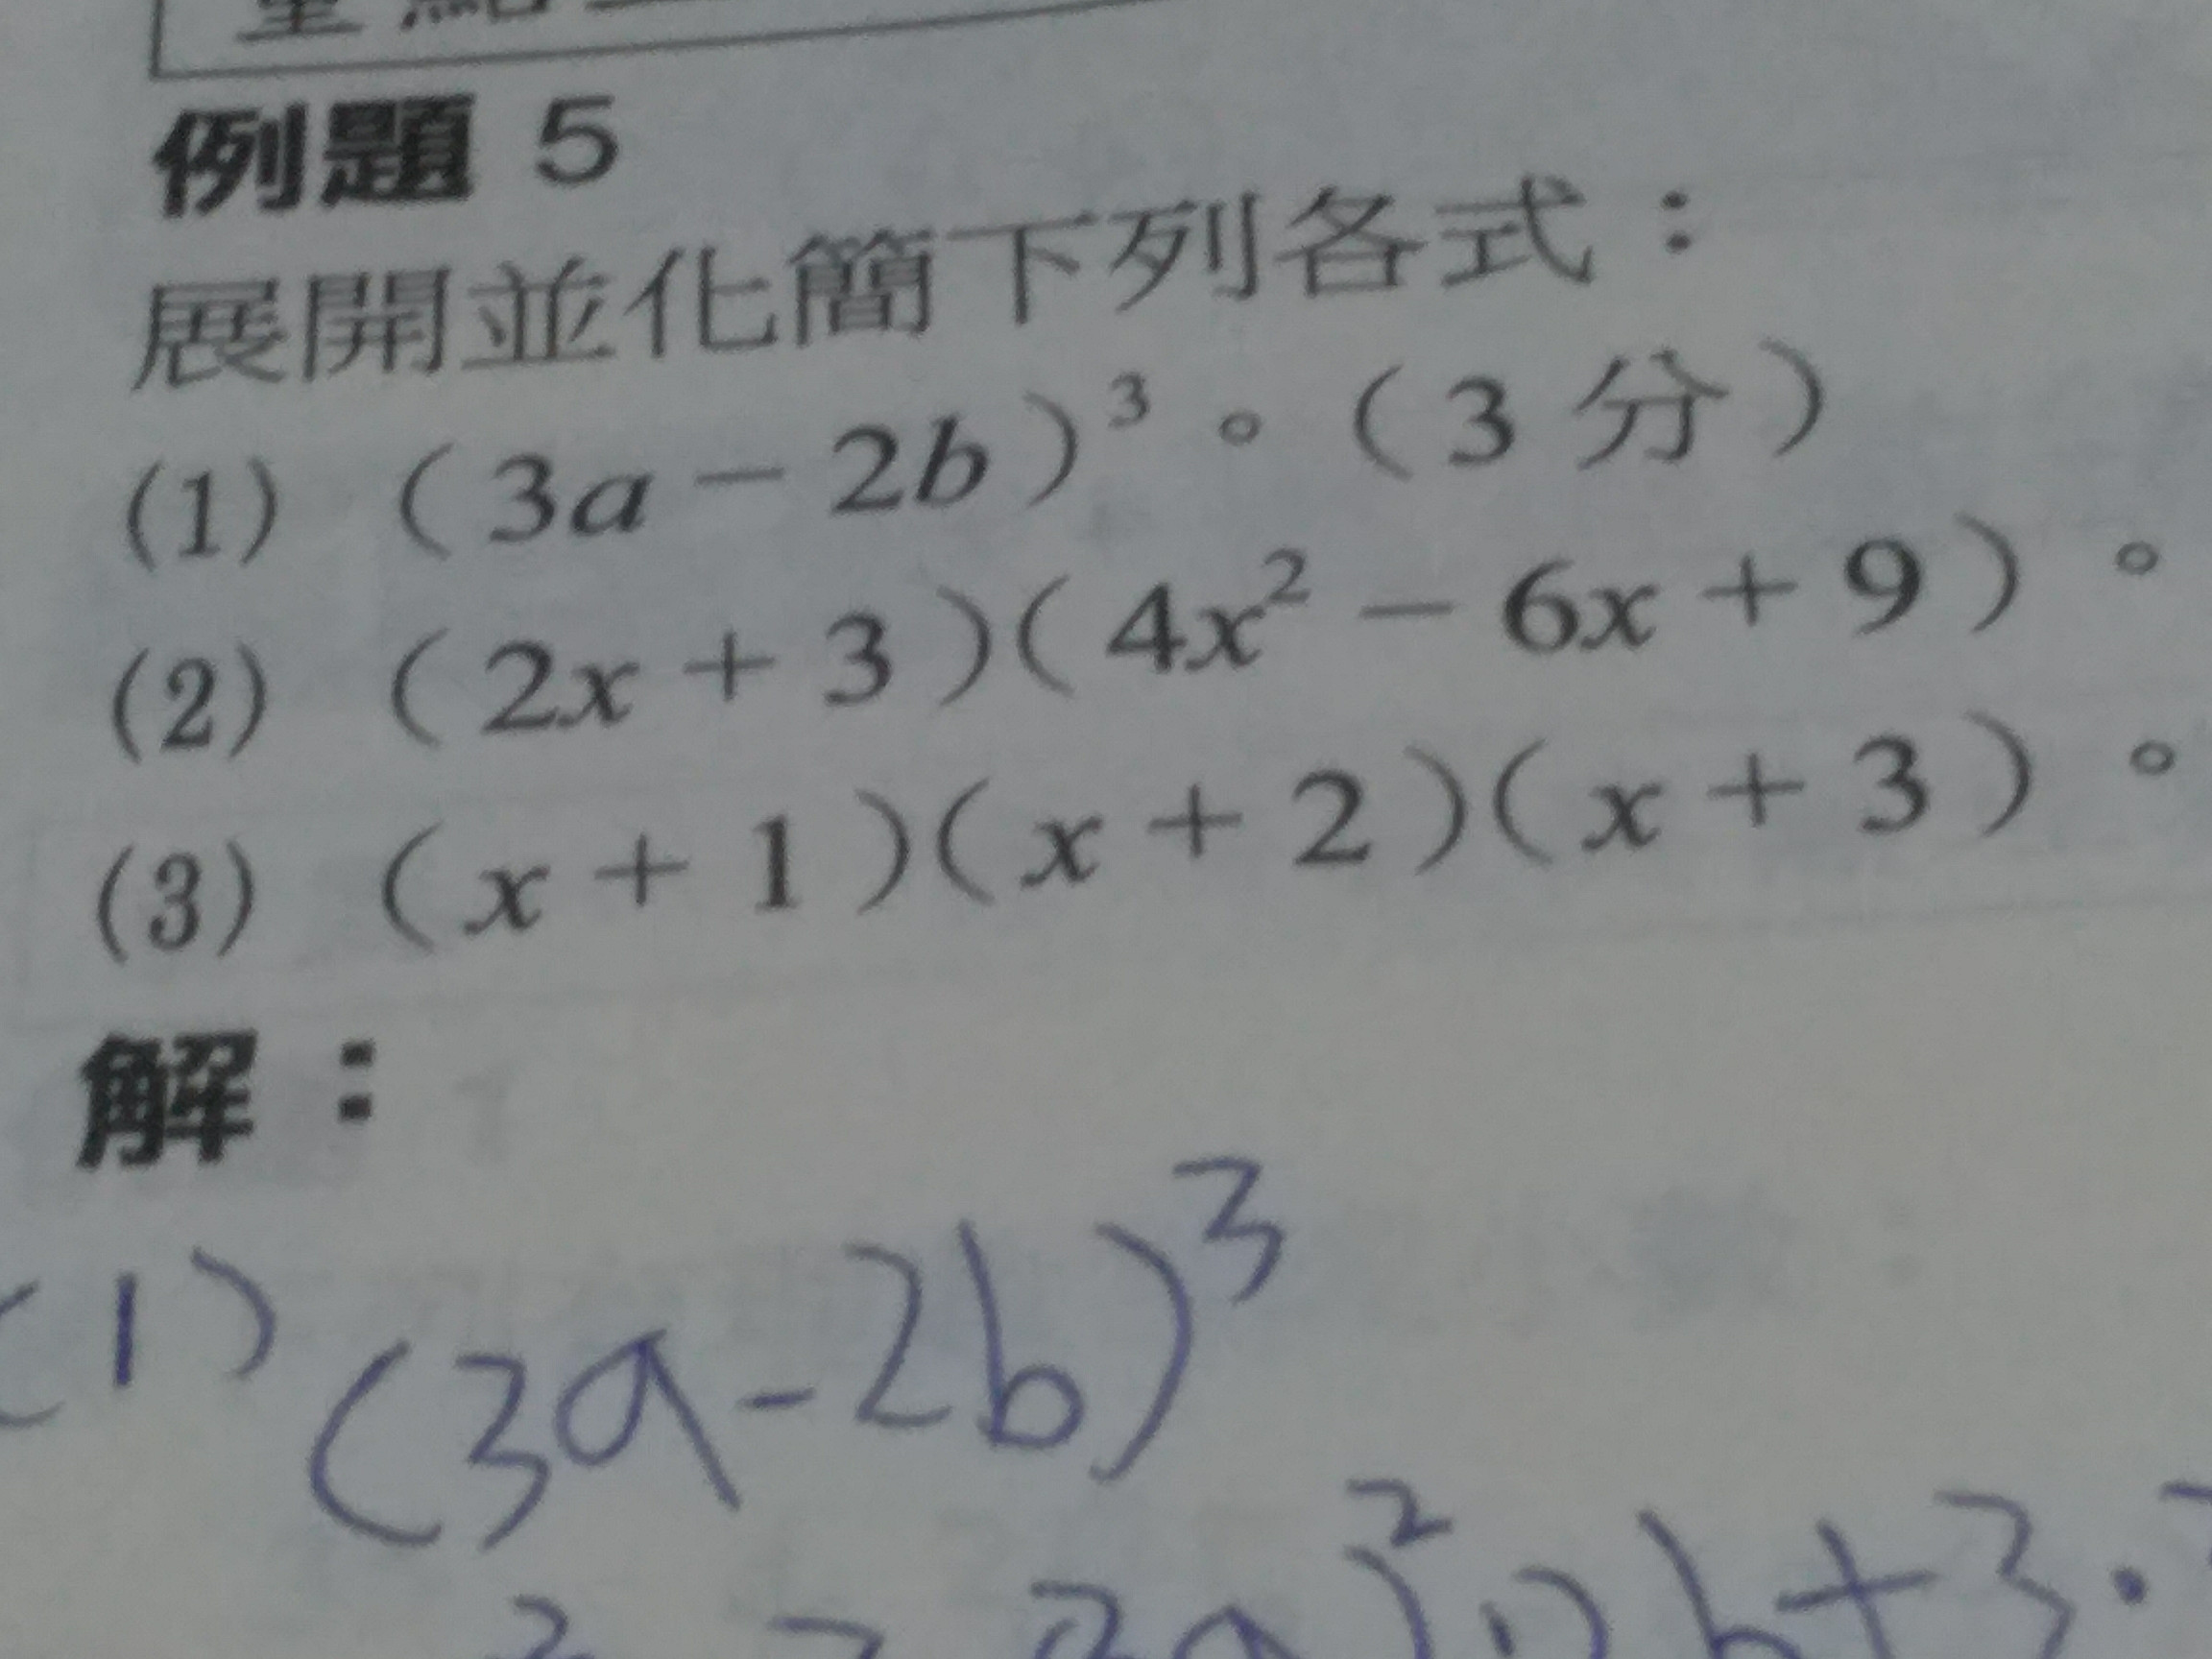 例題 5
展開並化簡下列各式：
(1) (3a－2b)³。(3分)
(2) (2x＋3)(4x²－6x＋9)。
(3) (x＋1)(x＋2)(x＋3)。
解：
(1) (3a-2b)³